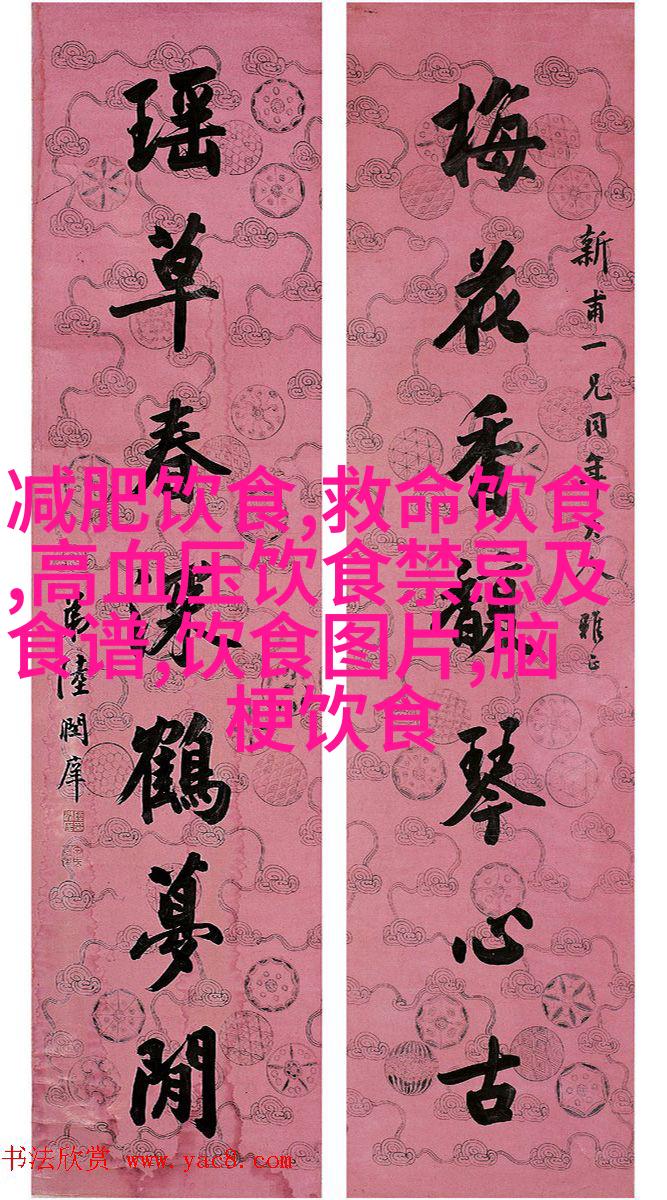 新甫一兄同年大人雅正
梅花香琴心古
瑶草春鹤夢閒
陸潤庠
减肥饮食,救命饮食
,高血压饮食禁忌及
食谱,饮食图片,脑
梗饮食
书法欣赏 www.yac8.com